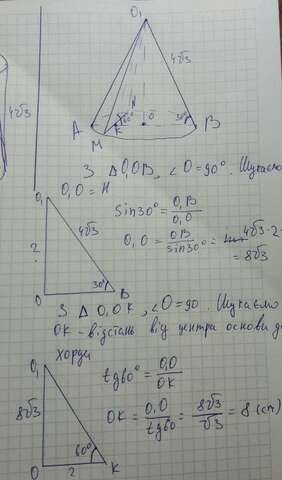 4√3
O₁
4√3
N
60°
30°
A
M
K
O
B
З △O₁OB, ∠O=90°. Шукаємо
O₁O = H
O₁
4√3
?
30°
O
B
Sin30° = O₁B/O₁O
O₁O = OB/sin30° = 4√3·2
= 8√3
З △O₁OK, ∠O=90. Шукаємо
OK - відстань від центра основи до
хорди
O₁
8√3
60°
O
?
K
tg60° = O₁O/OK
OK = O₁O/tg60 = 8√3/√3 = 8 (см)